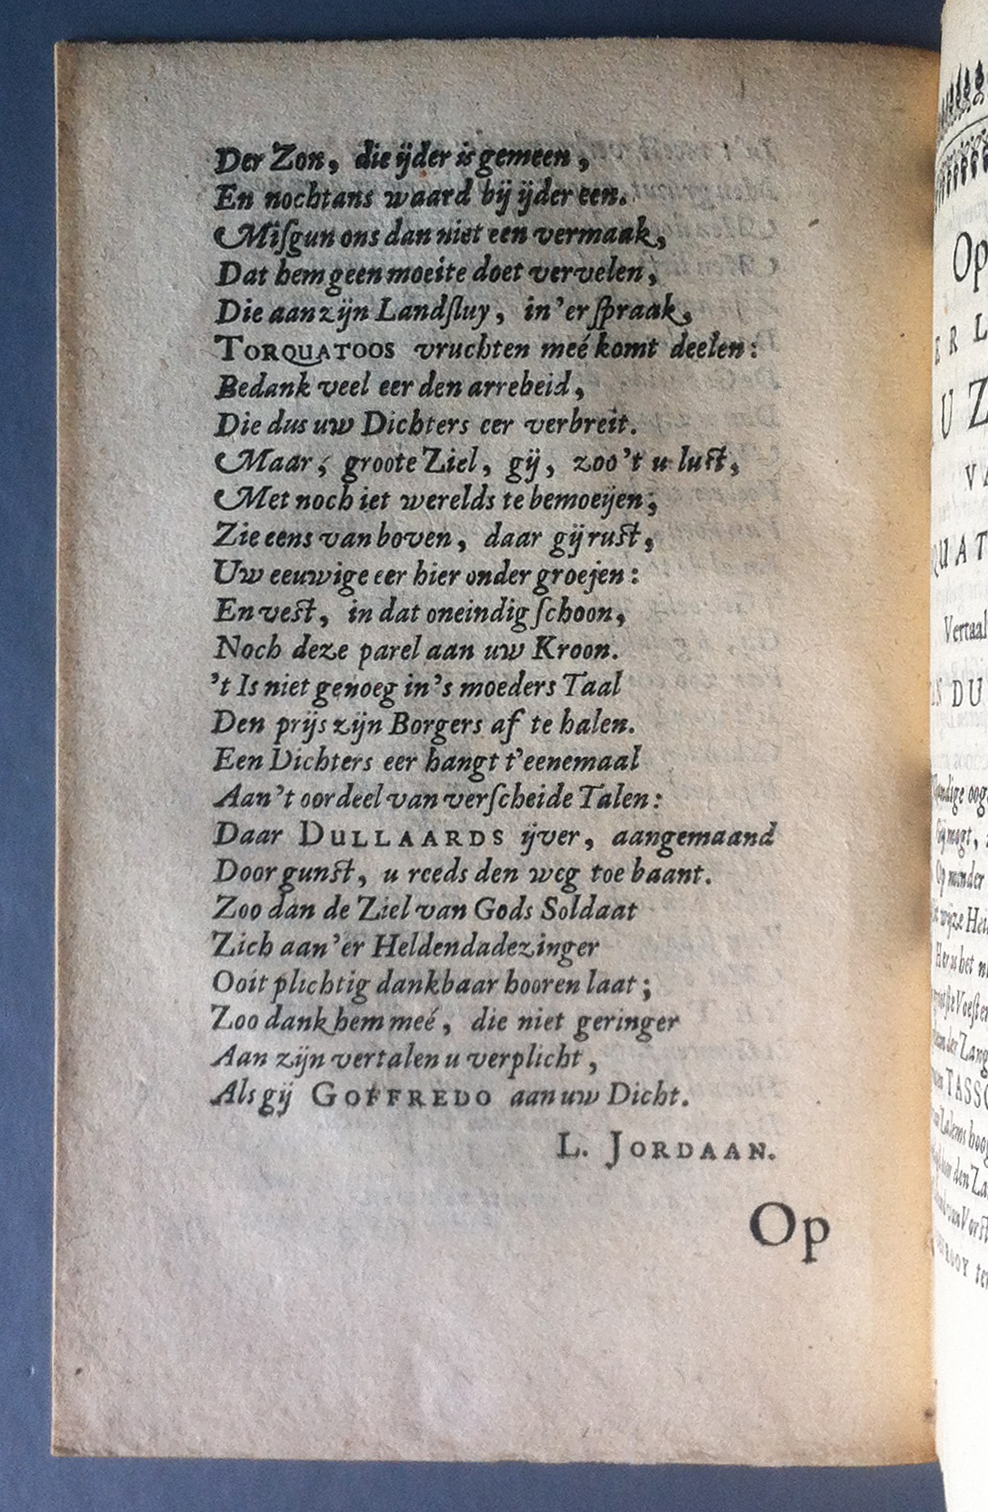 Der Zon, die ijder is gemeen,
En nochtans waard bij ijder een.
Miſgun ons dan niet een vermaak,
Dat hem geen moeite doet vervelen,
Die aan zijn Landſluy, in'er ſpraak,
TORQUATOOS vruchten meé komt deelen:
Bedank veel eer den arrebeid,
Die dus uw Dichters eer verbreit.
Maar, groote Ziel, gij, zoo't u luſt,
Met noch iet werelds te bemoeijen;
Zie eens van boven, daar gij ruſt,
Uw eeuwige eer hier onder groejen:
En veſt, in dat oneindig ſchoon,
Noch deze parel aan uw Kroon.
't Is niet genoeg in's moeders Taal
Den prijs zijn Borgers af te halen.
Een Dichters eer hangt t'eenemaal
Aan't oordeel van verſcheide Talen:
Daar DULLAARDS ijver, aangemaand
Door gunſt, u reeds den weg toe baant.
Zoo dan de Ziel van Gods Soldaat
Zich aan'er Heldendadezinger
Ooit plichtig dankbaar hooren laat;
Zoo dank hem meé, die niet geringer
Aan zijn vertalen u verplicht,
Als gij GOFFREDO aan uw Dicht.
L. JORDAAN.
Op
Op
Vertaal
TASSO